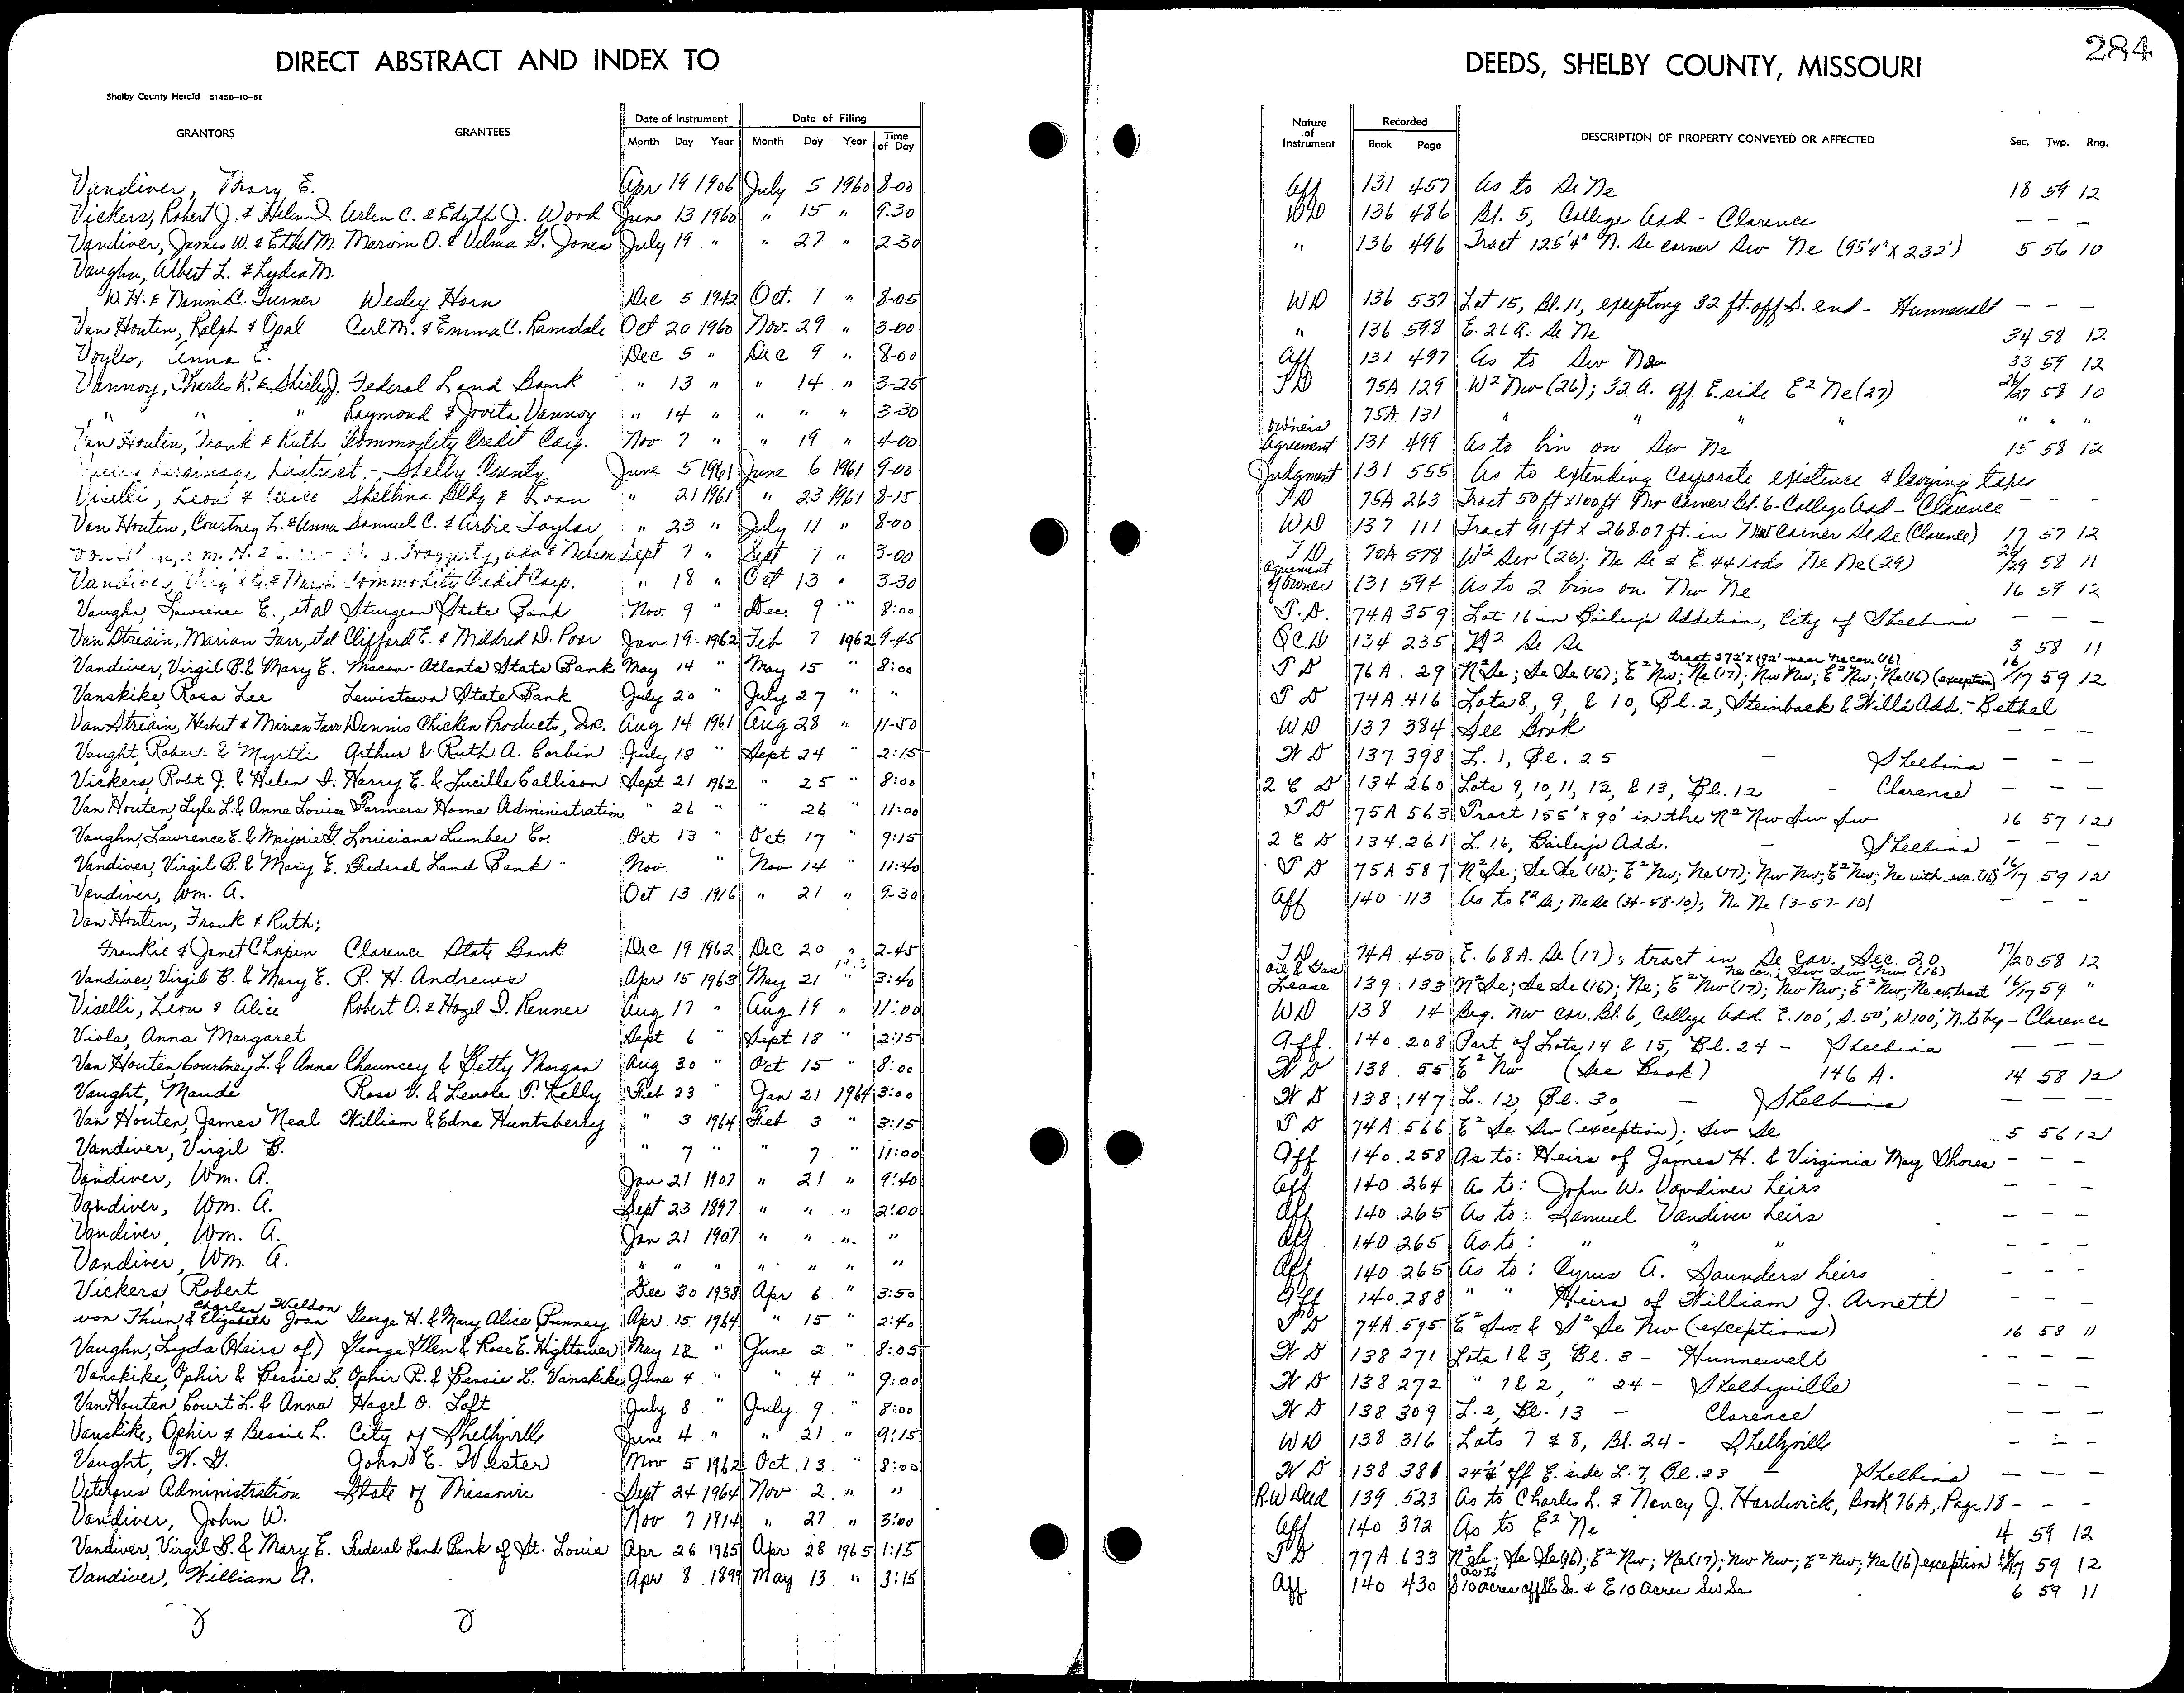 DIRECT ABSTRACT AND INDEX TO DEEDS, SHELBY COUNTY, MISSOURI 284
Shelby County Herald 51458-10-51
GRANTORS GRANTEES Date of Instrument Date of Filing Nature of Instrument Recorded DESCRIPTION OF PROPERTY CONVEYED OR AFFECTED Sec. Twp. Rng.
Month Day Year Month Day Year Time of Day Book Page
Vandiver, Mary E. Apr 19 1906 July 5 1960 8-00 Aff 131 457 As to Se Ne 18 59 12
Vickers, Robert J. & Helen I. Arlen C. & Edyth J. Wood June 13 1960 " 15 " 9-30 WD 136 486 Bl. 5, College Add - Clarence - - -
Vandiver, James W. & Ethel M. Marvin O. & Velma G. Jones July 19 " " 27 " 2-30 " 136 496 Tract 125'4" N. Se corner Sw Ne (95'4" X 232') 5 56 10
Vaughn, Albert L. & Lydia M.
W. H. & Nannie C. Turner Wesley Horn Dec 5 1942 Oct. 1 " 8-05 WD 136 537 Lot 15, Bl. 11, excepting 32 ft. off S. end - Hunnewell - - -
Van Houten, Ralph & Opal Carl M. & Emma C. Ramsdale Oct 20 1960 Nov. 29 " 3-00 " 136 598 E. 26 A. Se Ne 34 58 12
Voyles, Anna E. Dec 5 " Dec 9 " 8-00 Aff 131 497 As to Sw Ne 33 59 12
Vannoy, Charles K. & Shirley J. Federal Land Bank " 13 " " 14 " 3-25 TD 75A 129 W² Nw (26); 32 A. off E. side E² Ne (27) 26/27 58 10
" " " Raymond & Joveta Vannoy " 14 " " " " 3-30 75A 131 " " " " " "
Van Houten, Frank & Ruth Commodity Credit Corp. Nov 7 " " 19 " 4-00 Owner's Agreement 131 499 As to bin on Sw Ne 15 58 12
Drainage District - Shelby County June 5 1961 June 6 1961 9-00 Judgment 131 555 As to extending corporate existence & levying taxes
Viselli, Leon & Alice Shelbina Bldg & Loan " 21 1961 " 23 1961 8-15 TD 75A 263 Tract 50 ft x 100 ft Nw Corner Bl. 6 - College Add - Clarence - - -
Van Houten, Courtney L. & Anna Samuel C. & Arbie Taylor " 23 " July 11 " 8-00 WD 137 111 Tract 91 ft X 268.07 ft. in Corner Se Se (Clarence) 17 57 12
J. Haggerty, Nelson Sept 7 " Sept 7 " 3-00 TD 70A 578 W² Sw (26); Ne Se & E. 44 rods Ne Ne (29) 26/29 58 11
Vandiver, Virgil B. & Mary E. Commodity Credit Corp. " 18 " Oct 13 " 3-30 Agreement of Owner 131 594 As to 2 bins on Nw Ne 16 59 12
Vaughn, Lawrence E., et al Sturgeon State Bank Nov. 9 " Dec. 9 " 8:00 T.D. 74A 359 Lot 16 in Bailey's Addition, City of Shelbina - - -
Van Striain, Marian Farr, et al Clifford E. & Mildred D. Poor Jan 19 - 1962 Feb 7 1962 9-45 QCD 134 235 N² Se Se 3 58 11
Vandiver, Virgil B. & Mary E. Macon-Atlanta State Bank May 14 " May 15 " 8:00 TD 76A 29 N² Se; Se Se (16); E² Nw; Ne (17); Nw Nw; E² Nw; Ne (16) (exception) tract 272' X 192' near Ne cor. (16) 16/17 59 12
Vanskike, Rosa Lee Lewistown State Bank July 20 " July 27 " " TD 74A 416 Lots 8, 9, & 10, Bl. 2, Steinback & Will's Add. - Bethel
Van Striain, Herbert & Marian Farr Dennis Chicken Products, Inc. Aug 14 1961 Aug 28 " 11-50 WD 137 384 See Book - - -
Vaught, Robert & Myrtle Arthur & Ruth A. Corbin July 18 " Sept 24 " 2:15 WD 137 398 L. 1, Bl. 25 - Shelbina - - -
Vickers, Robt J. & Helen I. Harry E. & Lucille Callison Sept 21 1962 " 25 " 8:00 2 C D 134 260 Lots 9, 10, 11, 12, & 13, Bl. 12 - Clarence - - -
Van Houten, Lyle L. & Anna Louise Farmers Home Administration " 26 " " 26 " 11:00 TD 75A 563 Tract 155' x 90' in the N² Nw Sw Sw 16 57 12
Vaughn, Lawrence E. & Marjorie G. Louisiana Lumber Co. Oct 13 " Oct 17 " 9:15 2 C D 134 261 L. 16, Bailey's Add. - Shelbina - - -
Vandiver, Virgil B. & Mary E. Federal Land Bank Nov " Nov 14 " 11:40 TD 75A 587 N² Se; Se Se (16); E² Nw; Ne (17); Nw Nw; E² Nw; Ne with exc. (16) 16/17 59 12
Vandiver, Wm. A. Oct 13 1916 " 21 " 9-30 Aff 140 113 As to E² Se; Ne Se (34-58-10); Ne Ne (3-57-10) - - -
Van Houten, Frank & Ruth;
Frankie & Janet Chapin Clarence State Bank Dec 19 1962 Dec 20 " 2-45 TD 74A 450 E. 68 A. Se (17); tract in Se Cor. Sec. 20 17/20 58 12
Vandiver, Virgil B. & Mary E. R. H. Andrews Apr 15 1963 May 21 " 3:40 Oil & Gas Lease 139 133 N² Se; Se Se (16); Ne; E² Nw (17); Nw Nw; E² Nw; Ne ex. tract Ne cor.; Sw Sw Nw (16) 16/17 59 "
Viselli, Leon & Alice Robert O. & Hazel I. Renner Aug 17 " Aug 19 " 11:00 WD 138 14 Beg. Nw cor. Bl. 6, College Add. E. 100', S. 50', W 100', N. to beg - Clarence
Viola, Anna Margaret Sept 6 " Sept 18 " 2:15 Aff. 140 208 Part of Lots 14 & 15, Bl. 24 - Shelbina - - -
Van Houten, Courtney L. & Anna Chauncey & Betty Morgan Aug 30 " Oct 15 " 8:00 WD 138 55 E² Nw (See Book) 146 A. 14 58 12
Vaught, Maude Ross V. & Lenore P. Kelly Feb 23 " Jan 21 1964 3:00 WD 138 147 L. 12, Bl. 30, - Shelbina - - -
Van Houten, James Neal William & Edna Huntsberry " 3 1964 Feb 3 " 3:15 TD 74A 566 E² Se Sw (exception); Sw Se 5 56 12
Vandiver, Virgil B. " 7 " " 7 " 11:00 Aff 140 258 As to: Heirs of James H. & Virginia May Shores - - -
Vandiver, Wm. A. Jan 21 1907 " 21 " 9:40 Aff 140 264 As to: John W. Vandiver heirs - - -
Vandiver, Wm. A. Sept 23 1897 " " " 2:00 Aff 140 265 As to: Samuel Vandiver heirs - - -
Vandiver, Wm. A. Jan 21 1907 " " " " Aff 140 265 As to: " " " - - -
Vandiver, Wm. A. " " " " " " " Aff 140 265 As to: Cyrus A. Saunders heirs - - -
Vickers, Robert Dec 30 1938 Apr 6 " 3:50 Aff 140 288 " " Heirs of William J. Arnett - - -
von Thun, Charles Weldon & Elizabeth Joan George H. & Mary Alice Punney Apr. 15 1964 " 15 " 2:40 TD 74A 595 E² Sw & S² Se Nw (exceptions) 16 58 11
Vaughn, Lyda (Heirs of) George Glen & Rose E. Hightower May 12 " June 2 " 8:05 WD 138 271 Lots 1 & 3, Bl. 3 - Hunnewell - - -
Vanskike, Ophir & Bessie L. Ophir R. & Bessie L. Vanskike June 4 " " 4 " 9:00 WD 138 272 " 1 & 2, " 24 - Shelbyville - - -
Van Houten, Court L. & Anna Hazel O. Toft July 8 " July 9 " 8:00 WD 138 309 L. 2, Bl. 13 - Clarence - - -
Vanskike, Ophir & Bessie L. City of Shelbyville June 4 " " 21 " 9:15 WD 138 316 Lots 7 & 8, Bl. 24 - Shelbyville - - -
Vaught, W. G. John E. Wester Nov 5 1962 Oct. 13 " 8:00 WD 138 381 off E. side L. 7, Bl. 23 - Shelbina - - -
Veterans Administration State of Missouri Sept 24 1964 Nov 2 " " R.W. Deed 139 523 As to Charles L. & Nancy J. Hardwick, Book 76A, Page 18 - - -
Vandiver, John W. Nov. 7 1914 " 27 " 3:00 Aff 140 372 As to E² Ne 4 59 12
Vandiver, Virgil B. & Mary E. Federal Land Bank of St. Louis Apr 26 1965 Apr 28 1965 1:15 TD 77A 633 N² Se; Se Se (16); E² Nw; Ne (17); Nw Nw; E² Nw; Ne (16) exception 16/17 59 12
Vandiver, William A. Apr 8 1899 May 13 " 3:15 Aff 140 430 As to S 10 acres off SE Se & E 10 Acres Sw Se 6 59 11